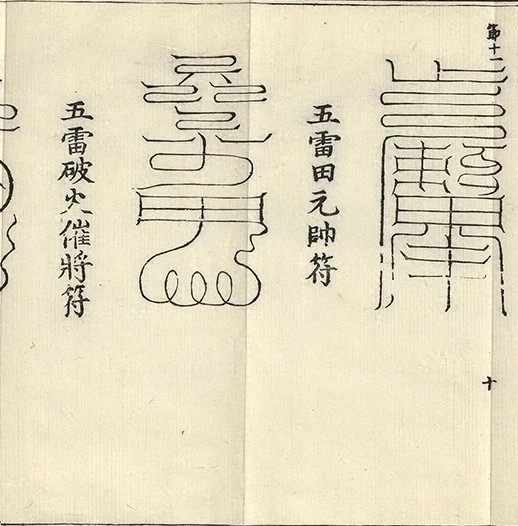 第十一
十
五雷田元帥符
五雷破火催將符